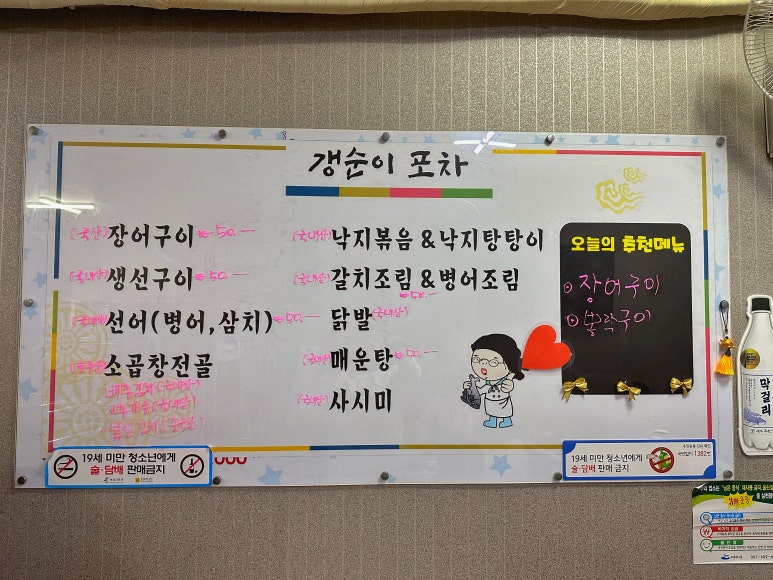 갱순이 포차
(국산) 장어구이 50.—
(국내산) 생선구이 50.—
(국내산) 선어(병어,삼치) 50.—
소곱창전골
(국내산)
(국내산)
(국내산) 낙지볶음&낙지탕탕이
(국내산) 갈치조림&병어조림
50.—
닭발 (국내산)
(국내산) 매운탕 50.—
(국내산) 사시미
오늘의 추천메뉴
장어구이
19세 미만 청소년에게
술·담배 판매금지
000
19세 미만 청소년에게
술·담배 판매 금지
1382번
막걸리